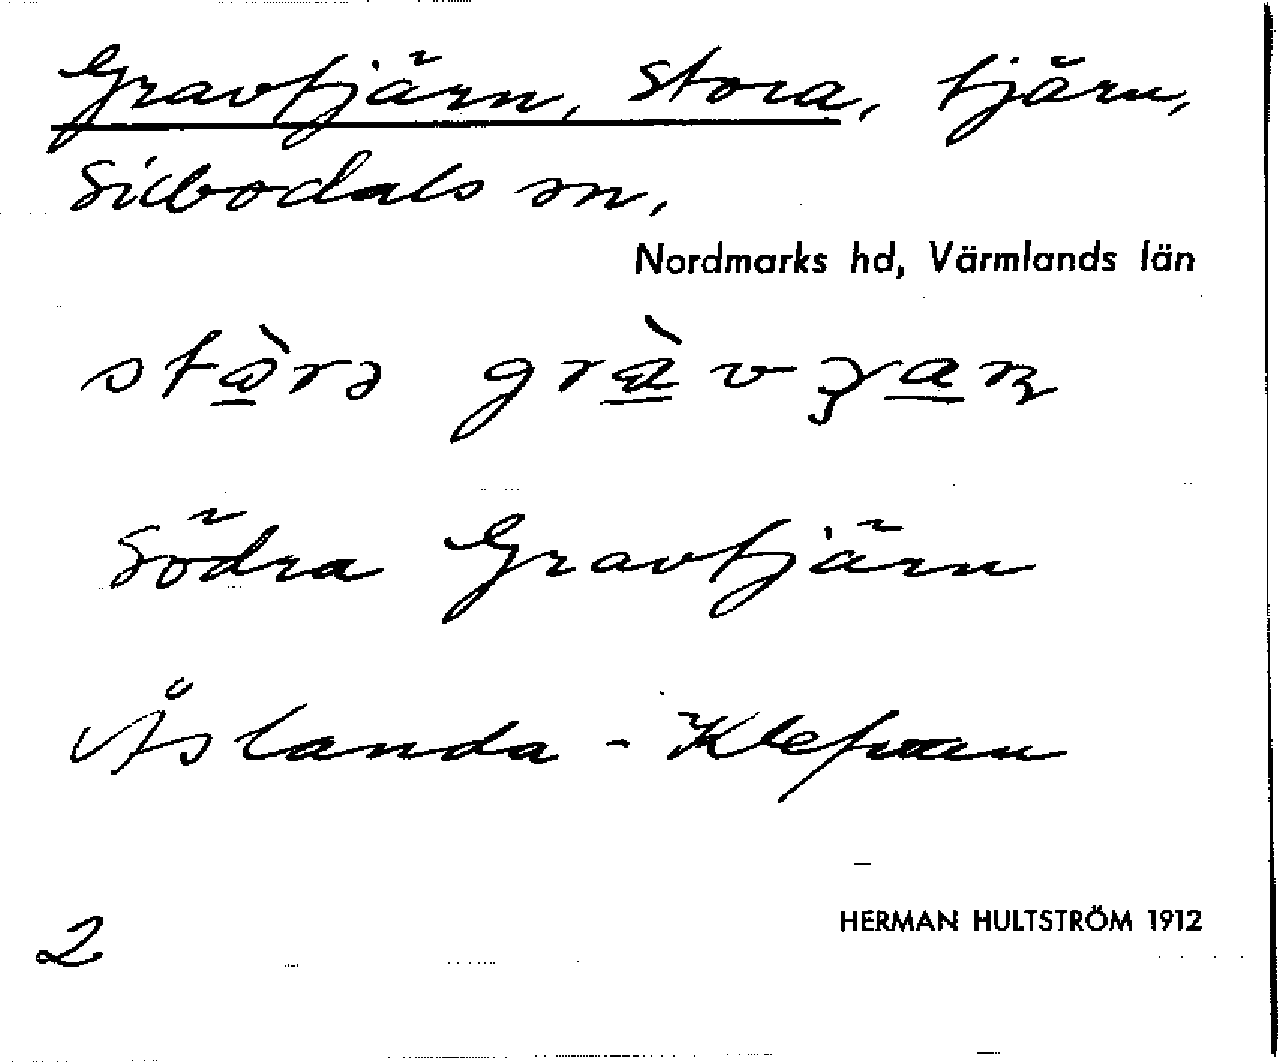 Gravtjärn, Stora, tjärn,
Silbodals sn,
Nordmarks hd, Värmlands län
Södra Gravtjärn
Åslanda -
HERMAN HULTSTRÖM 1912
2